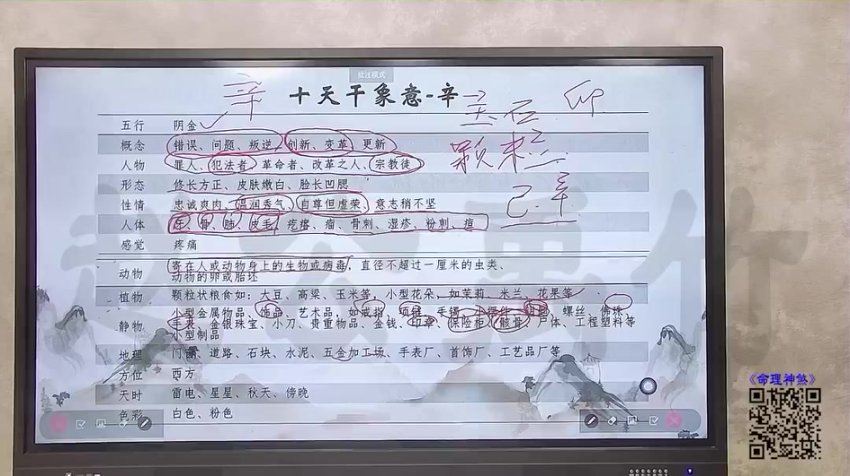 批注模式
辛 十天干象意-辛 玉石 卯
颗米
己 辛
五行 阴金
概念 错误、问题、叛逆、创新、变革、更新
人物 罪人、犯法者、革命者、改革之人、宗教徒
形态 修长方正、皮肤嫩白、脸长凹腮
性情 忠诚爽肉、温润秀气、自尊但虚荣、意志稍不坚
人体 牙、骨、肺、皮毛、疙瘩、瘤、骨刺、湿疹、粉刺、痘
感觉 疼痛
动物 寄在人或动物身上的生物或病毒，直径不超过一厘米的虫类、
动物的卵或胎坯
植物 颗粒状粮食如：大豆、高粱、玉米等，小型花朵，如茉莉、米兰、花果等
静物 小型金属物品、饰品、艺术品，如戒指、项链、手镯、螺丝、佛珠、
手表、金银珠宝、小刀、贵重物品、金钱、印章、保险柜、骸骨、尸体、工程塑料等
小型制品
地理 道路、石块、水泥、五金加工场、手表厂、首饰厂、工艺品厂等
方位 西方
天时 雷电、星星、秋天、傍晚
色彩 白色、粉色
《命理神煞》